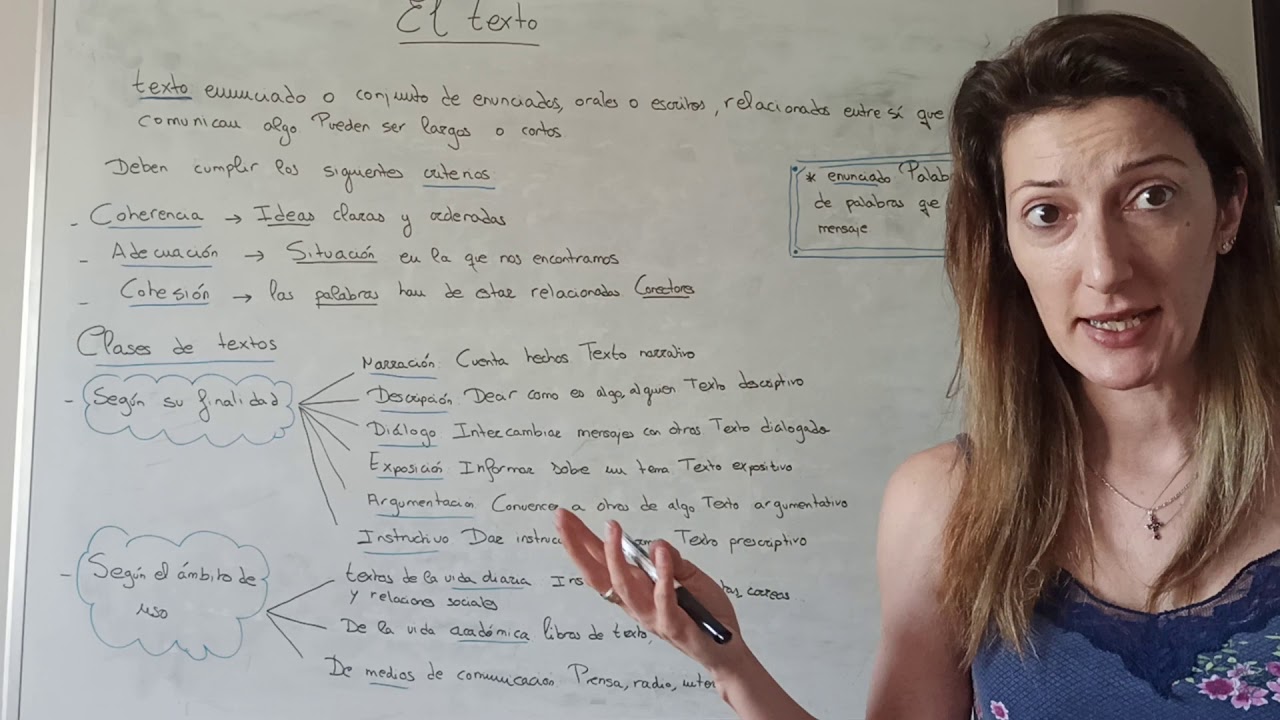 El texto
texto enunciado o conjunto de enunciados, orales o escritos, relacionados entre sí que
comunican algo Pueden ser largos o cortos
Deben cumplir los siguientes criterios
* enunciado Palab
de palabras que
mensaje
- Coherencia → Ideas claras y ordenadas
- Adecuación → Situación en la que nos encontramos
- Cohesión → las palabras han de estar relacionadas Conectores
Clases de textos
- Según su finalidad
Narración: Cuenta hechos Texto narrativo
Descripción Decar como es algo, alguien Texto descriptivo
Diálogo Intercambiar mensajes con otros Texto dialogado
Exposición Informar sobe un tema Texto expositivo
Argumentacion Convencer a otros de algo Texto argumentativo
Instructivo Dar instruc Texto prescriptivo
- Según el ámbito de
uso
textos de la vida diaria Ins correos
y relaciones sociales
De la vida académica libros de texto,
De medios de comunicación Prensa, radio, inter